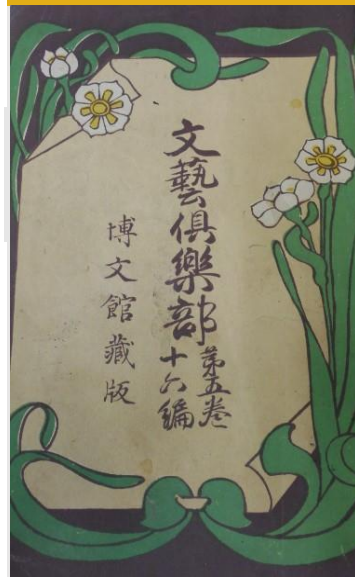 文藝倶樂部
第五卷
十六編
博文館藏版